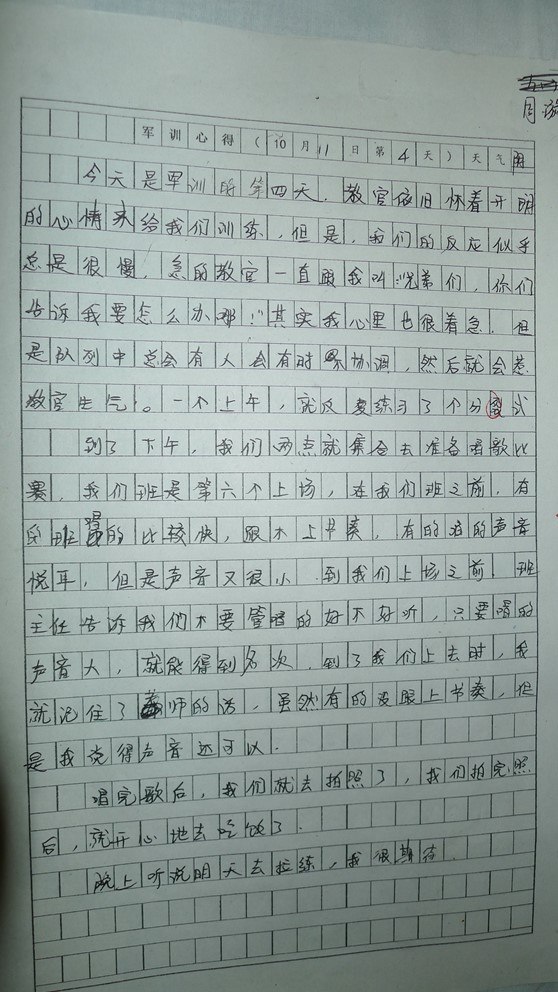 周
军训心得(10月11日第4天)天气阴
今天是军训的第四天。教官依旧怀着开朗
的心情来给我们训练,但是,我们的反应似乎
总是很慢,急的教官一直跟我叫:"兄弟们,你们
告诉我要怎么办哪!"其实我心里也很着急,但
是队列中总会有人会有时不协调,然后就会惹
教官生气。一个上午,就反复练习了个分列式
到了下午,我们两点就集合去准备唱歌比
赛,我们班是第六个上场,在我们班之前,有
的班唱的比较快,跟不上节奏,有的唱的声音
悦耳,但是声音又很小.到我们上场之前,班
主任告诉我们不要管唱的好不好听,只要唱的
声音大,就能得到名次.到了我们上去时,我
就记住了师的话,虽然有的没跟上节奏,但
是我觉得声音还可以.
唱完歌后,我们就去拍照了,我们拍完照
后,就开心地去吃饭了.
晚上听说明天去拉练,我很期待.